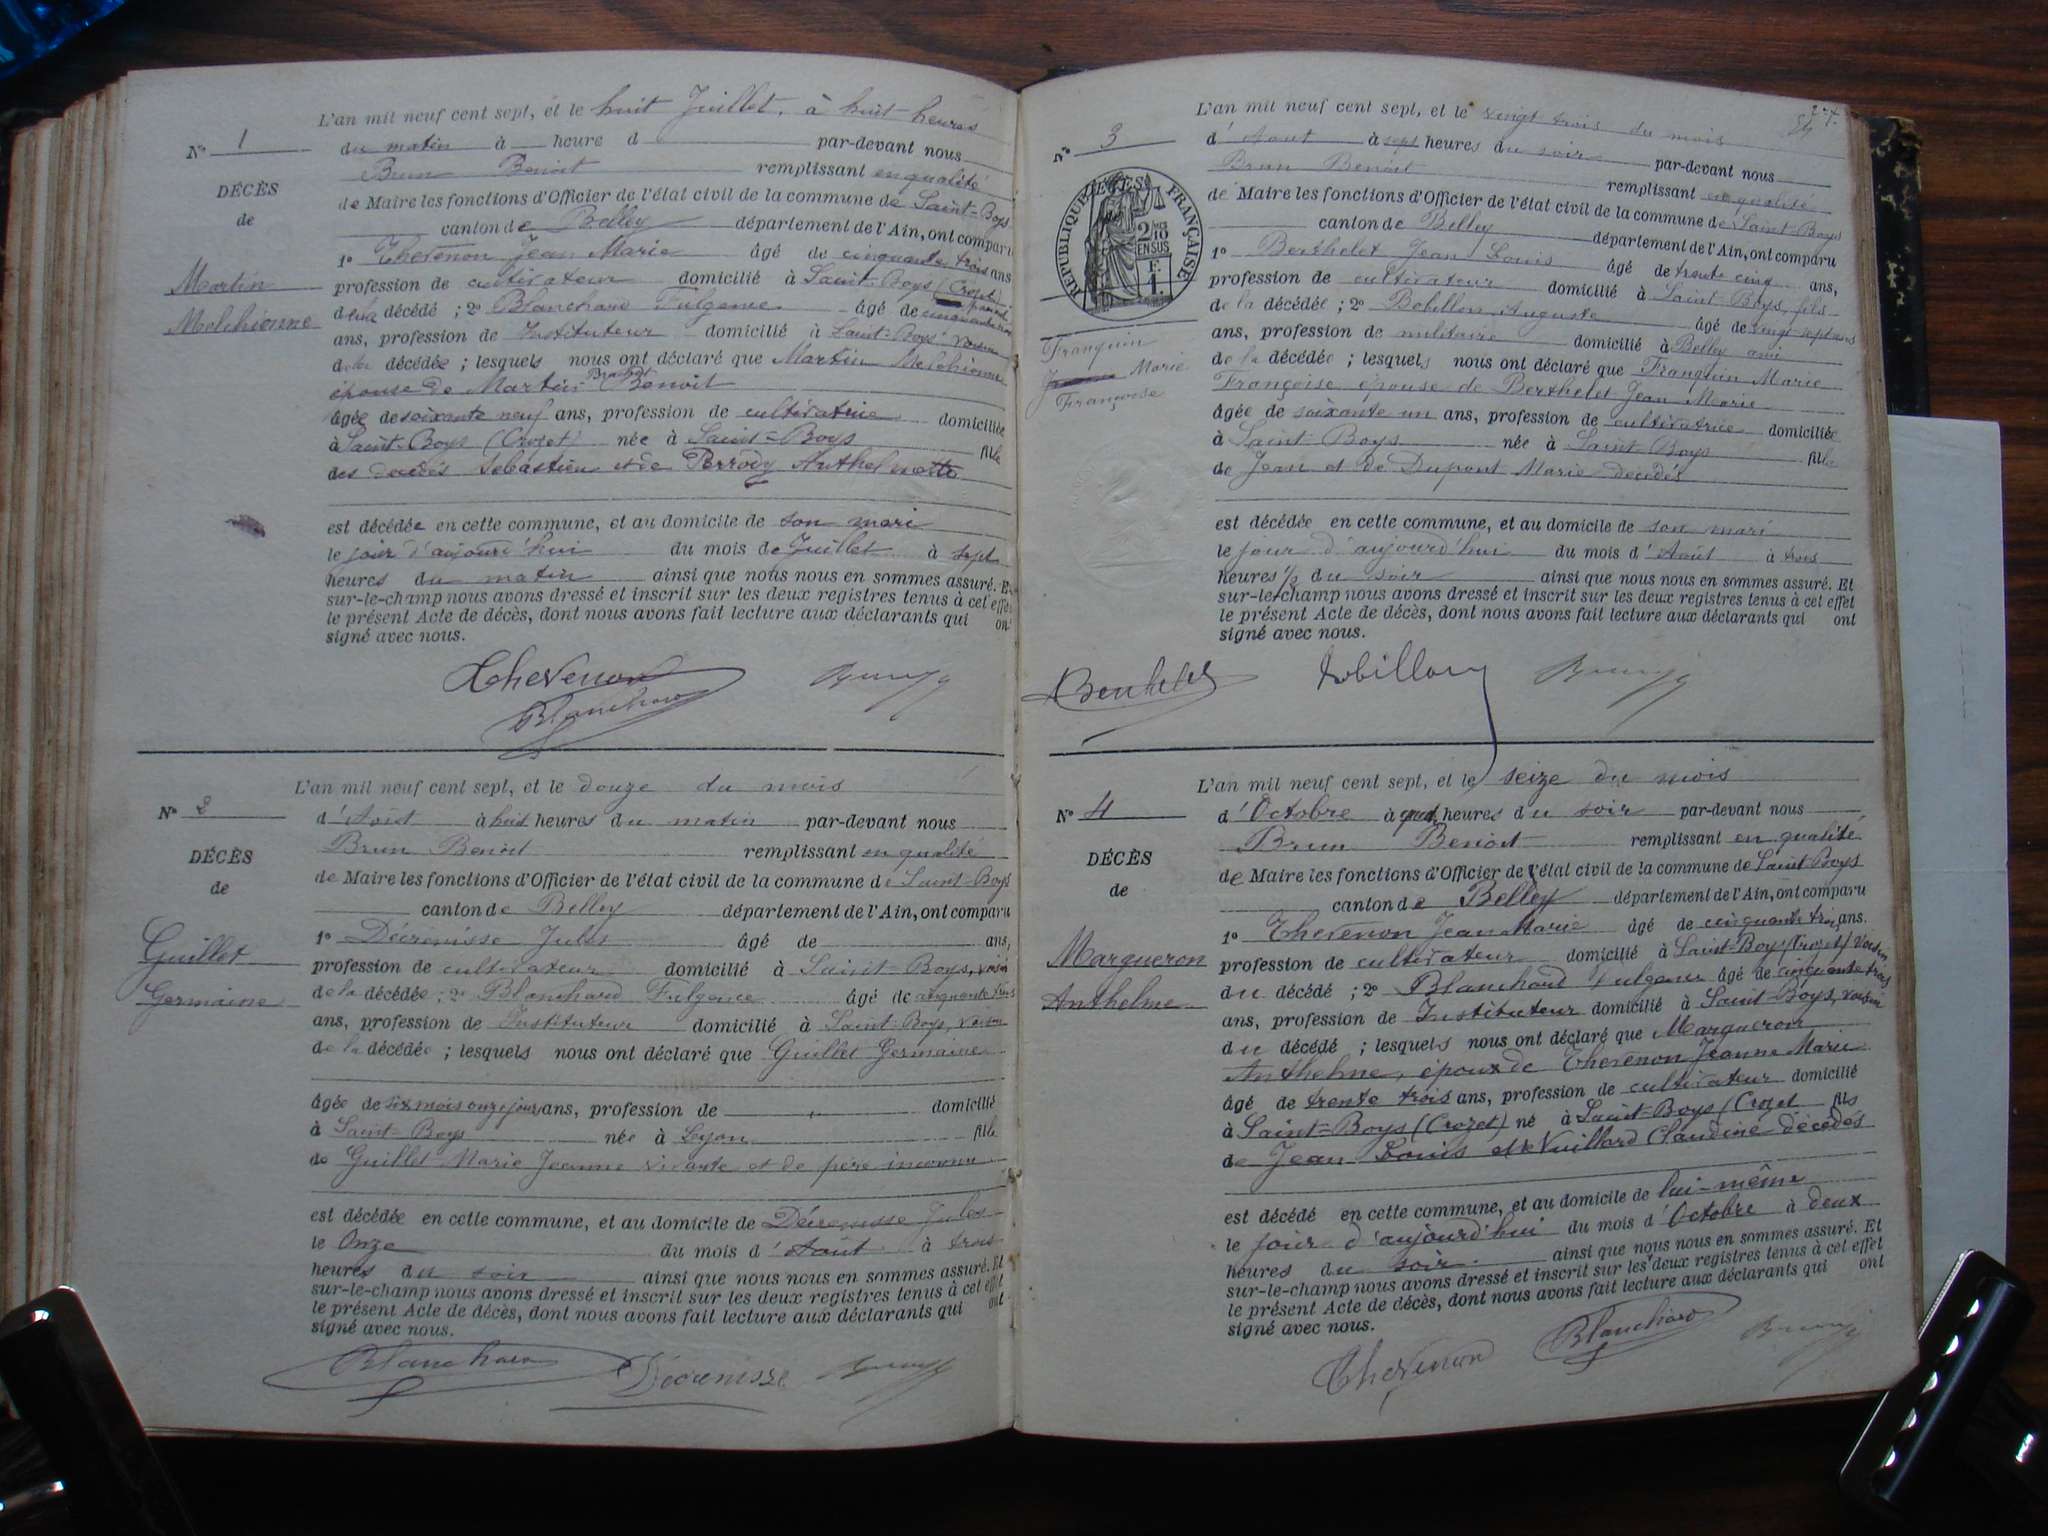 L'an mil neuf cent sept, et le huit Juillet, à huit heures
N° 1
du matin à heure d par-devant nous
Brun Benoit remplissant en qualité
DÉCÈS
de Maire les fonctions d'Officier de l'état civil de la commune de Saint-Boys
de
canton de Belley département de l'Ain, ont comparu
1° Thevenon Jean Marie âgé de cinquante trois ans
Martin
profession de cultivateur domicilié à Saint-Boys (Crozet)
Melchionne
décédé ; 2° Blanchard Fulgence âgé de cinquante trois
ans, profession de Instituteur domicilié à Saint-Boys voisin
de la décédée ; lesquels nous ont déclaré que Martin Melchionne
épouse de Martin-Brachet Benoit
âgée de soixante neuf ans, profession de cultivatrice domiciliée
à Saint-Boys (Crozet) née à Saint-Boys fille
des décédés Sébastien et de Perrody Anthelmette
est décédée en cette commune, et au domicile de son mari
le jour d'aujourd'hui du mois de Juillet à sept
heures du matin ainsi que nous nous en sommes assuré. Et
sur-le-champ nous avons dressé et inscrit sur les deux registres tenus à cet effet
le présent Acte de décès, dont nous avons fait lecture aux déclarants qui ont
signé avec nous.
Thevenon
Blanchard
Brun
L'an mil neuf cent sept, et le douze du mois
N° 2
d'Août à huit heures du matin par-devant nous
Brun Benoit remplissant en qualité
DÉCÈS
de Maire les fonctions d'Officier de l'état civil de la commune de Saint-Boys
de
canton de Belley département de l'Ain, ont comparu
1° Décrenisse Jules âgé de ans,
Guillet
profession de cultivateur domicilié à Saint-Boys, voisin
Germaine
de la décédée ; 2° Blanchard Fulgence âgé de cinquante trois
ans, profession de Instituteur domicilié à Saint-Boys, voisin
de la décédée ; lesquels nous ont déclaré que Guillet Germaine
âgée de six mois onze jours ans, profession de domicilié
à Saint-Boys née à Lyon fille
de Guillet Marie Jeanne vivante et de père inconnu
est décédée en cette commune, et au domicile de Décrenisse Jules
le Onze du mois d'Août à trois
heures du soir ainsi que nous nous en sommes assuré. Et
sur-le-champ nous avons dressé et inscrit sur les deux registres tenus à cet effet
le présent Acte de décès, dont nous avons fait lecture aux déclarants qui ont
signé avec nous.
Blanchard Décrenisse Brun
27.
L'an mil neuf cent sept, et le vingt trois du mois
N° 3
d'Aout à sept heures du soir par-devant nous
Brun Benoit remplissant en qualité
de Maire les fonctions d'Officier de l'état civil de la commune de Saint-Boys
canton de Belley département de l'Ain, ont comparu
RÉPUBLIQUE FRANÇAISE
2/10 EN SUS
F. 1.
1° Berthelet Jean Louis âgé de trente cinq ans,
profession de cultivateur domicilié à Saint-Boys, fils
de la décédée ; 2° Bobillon Auguste âgé de vingt sept ans
Franquin
Marie
Françoise
ans, profession de militaire domicilié à Belley ami
de la décédée ; lesquels nous ont déclaré que Franquin Marie
Françoise épouse de Berthelet Jean Marie
âgée de soixante un ans, profession de cultivatrice domiciliée
à Saint-Boys née à Saint-Boys fille
de Jean et de Dupont Marie décédés
est décédée en cette commune, et au domicile de son mari
le jour d'aujourd'hui du mois d'Août à trois
heures ½ du soir ainsi que nous nous en sommes assuré. Et
sur-le-champ nous avons dressé et inscrit sur les deux registres tenus à cet effet
le présent Acte de décès, dont nous avons fait lecture aux déclarants qui ont
signé avec nous.
Berthelet Bobillon Brun
L'an mil neuf cent sept, et le seize du mois
N° 4
d'Octobre à heures du soir par-devant nous
Brun Benoit remplissant en qualité
DÉCÈS
de Maire les fonctions d'Officier de l'état civil de la commune de Saint-Boys
de
canton de Belley département de l'Ain, ont comparu
1° Thevenon Jean Marie âgé de cinquante trois ans.
Margueron
profession de cultivateur domicilié à Saint-Boys (Crozet) voisin
Anthelme
du décédé ; 2° Blanchard Fulgence âgé de cinquante trois
ans, profession de Instituteur domicilié à Saint-Boys, voisin
du décédé ; lesquels nous ont déclaré que Margueron
Anthelme, époux de Thevenon Jeanne Marie
âgé de trente trois ans, profession de cultivateur domicilié
à Saint-Boys (Crozet) né à Saint-Boys (Crozet fils
de Jean Louis et de Vuillard Claudine décédés
est décédé en cette commune, et au domicile de lui-même
le jour d'aujourd'hui du mois d'Octobre à deux
heures du soir. ainsi que nous nous en sommes assuré. Et
sur-le-champ nous avons dressé et inscrit sur les deux registres tenus à cet effet
le présent Acte de décès, dont nous avons fait lecture aux déclarants qui ont
signé avec nous.
Thevenon Blanchard Brun